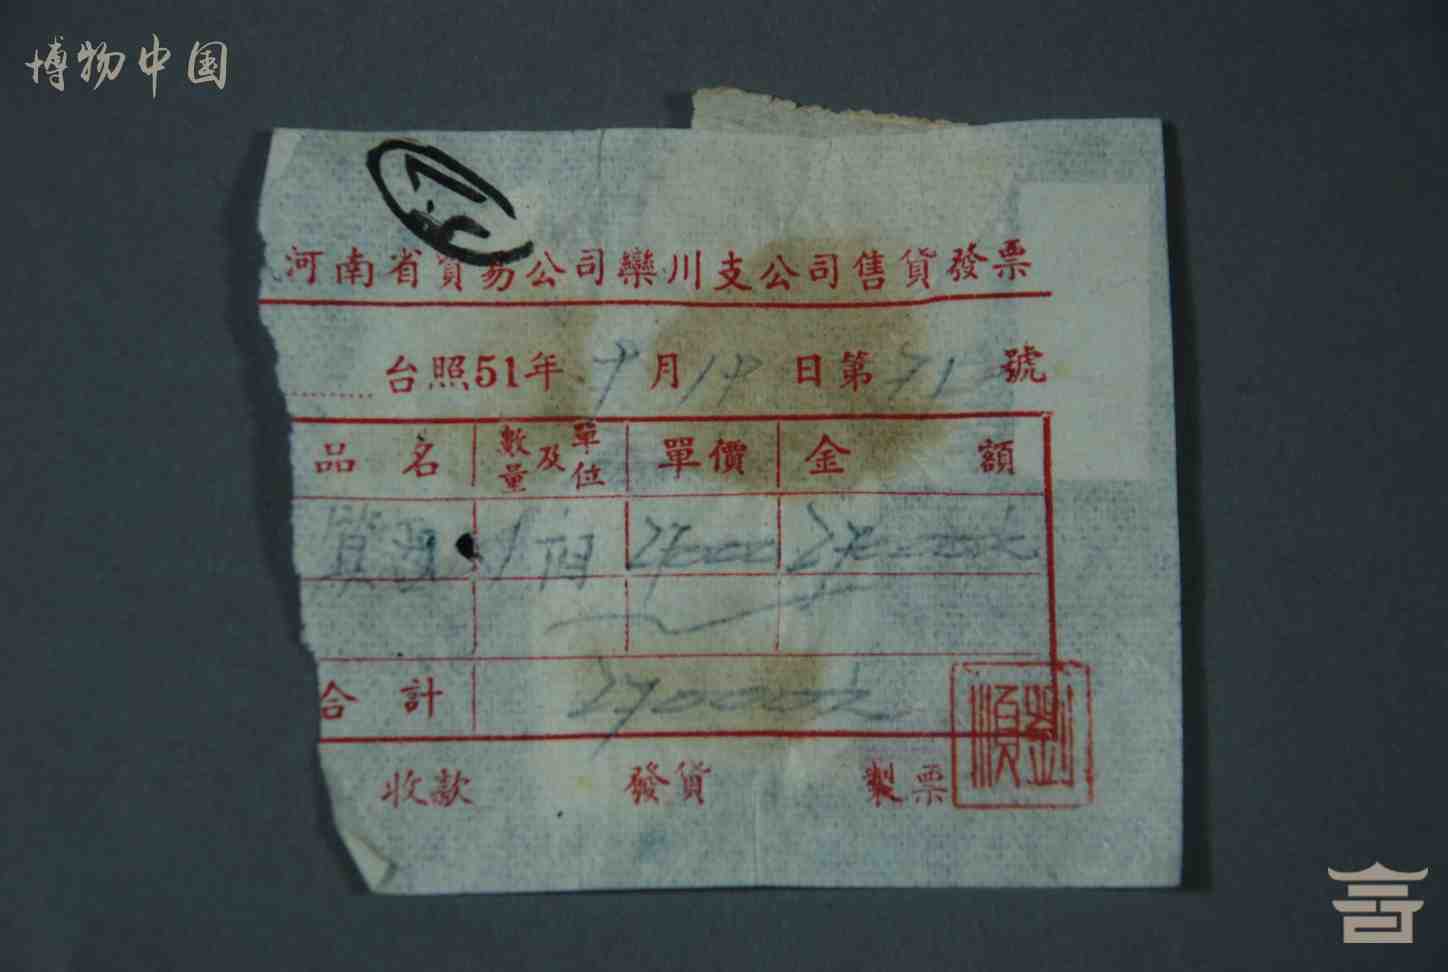 博物中国
河南省貿易公司欒川支公司售貨發票
台照51年 9月19日第71 號
品名 數量及單位 單價 金額
1 27000 270000
合計 270000
收款 發貨 製票
劉順